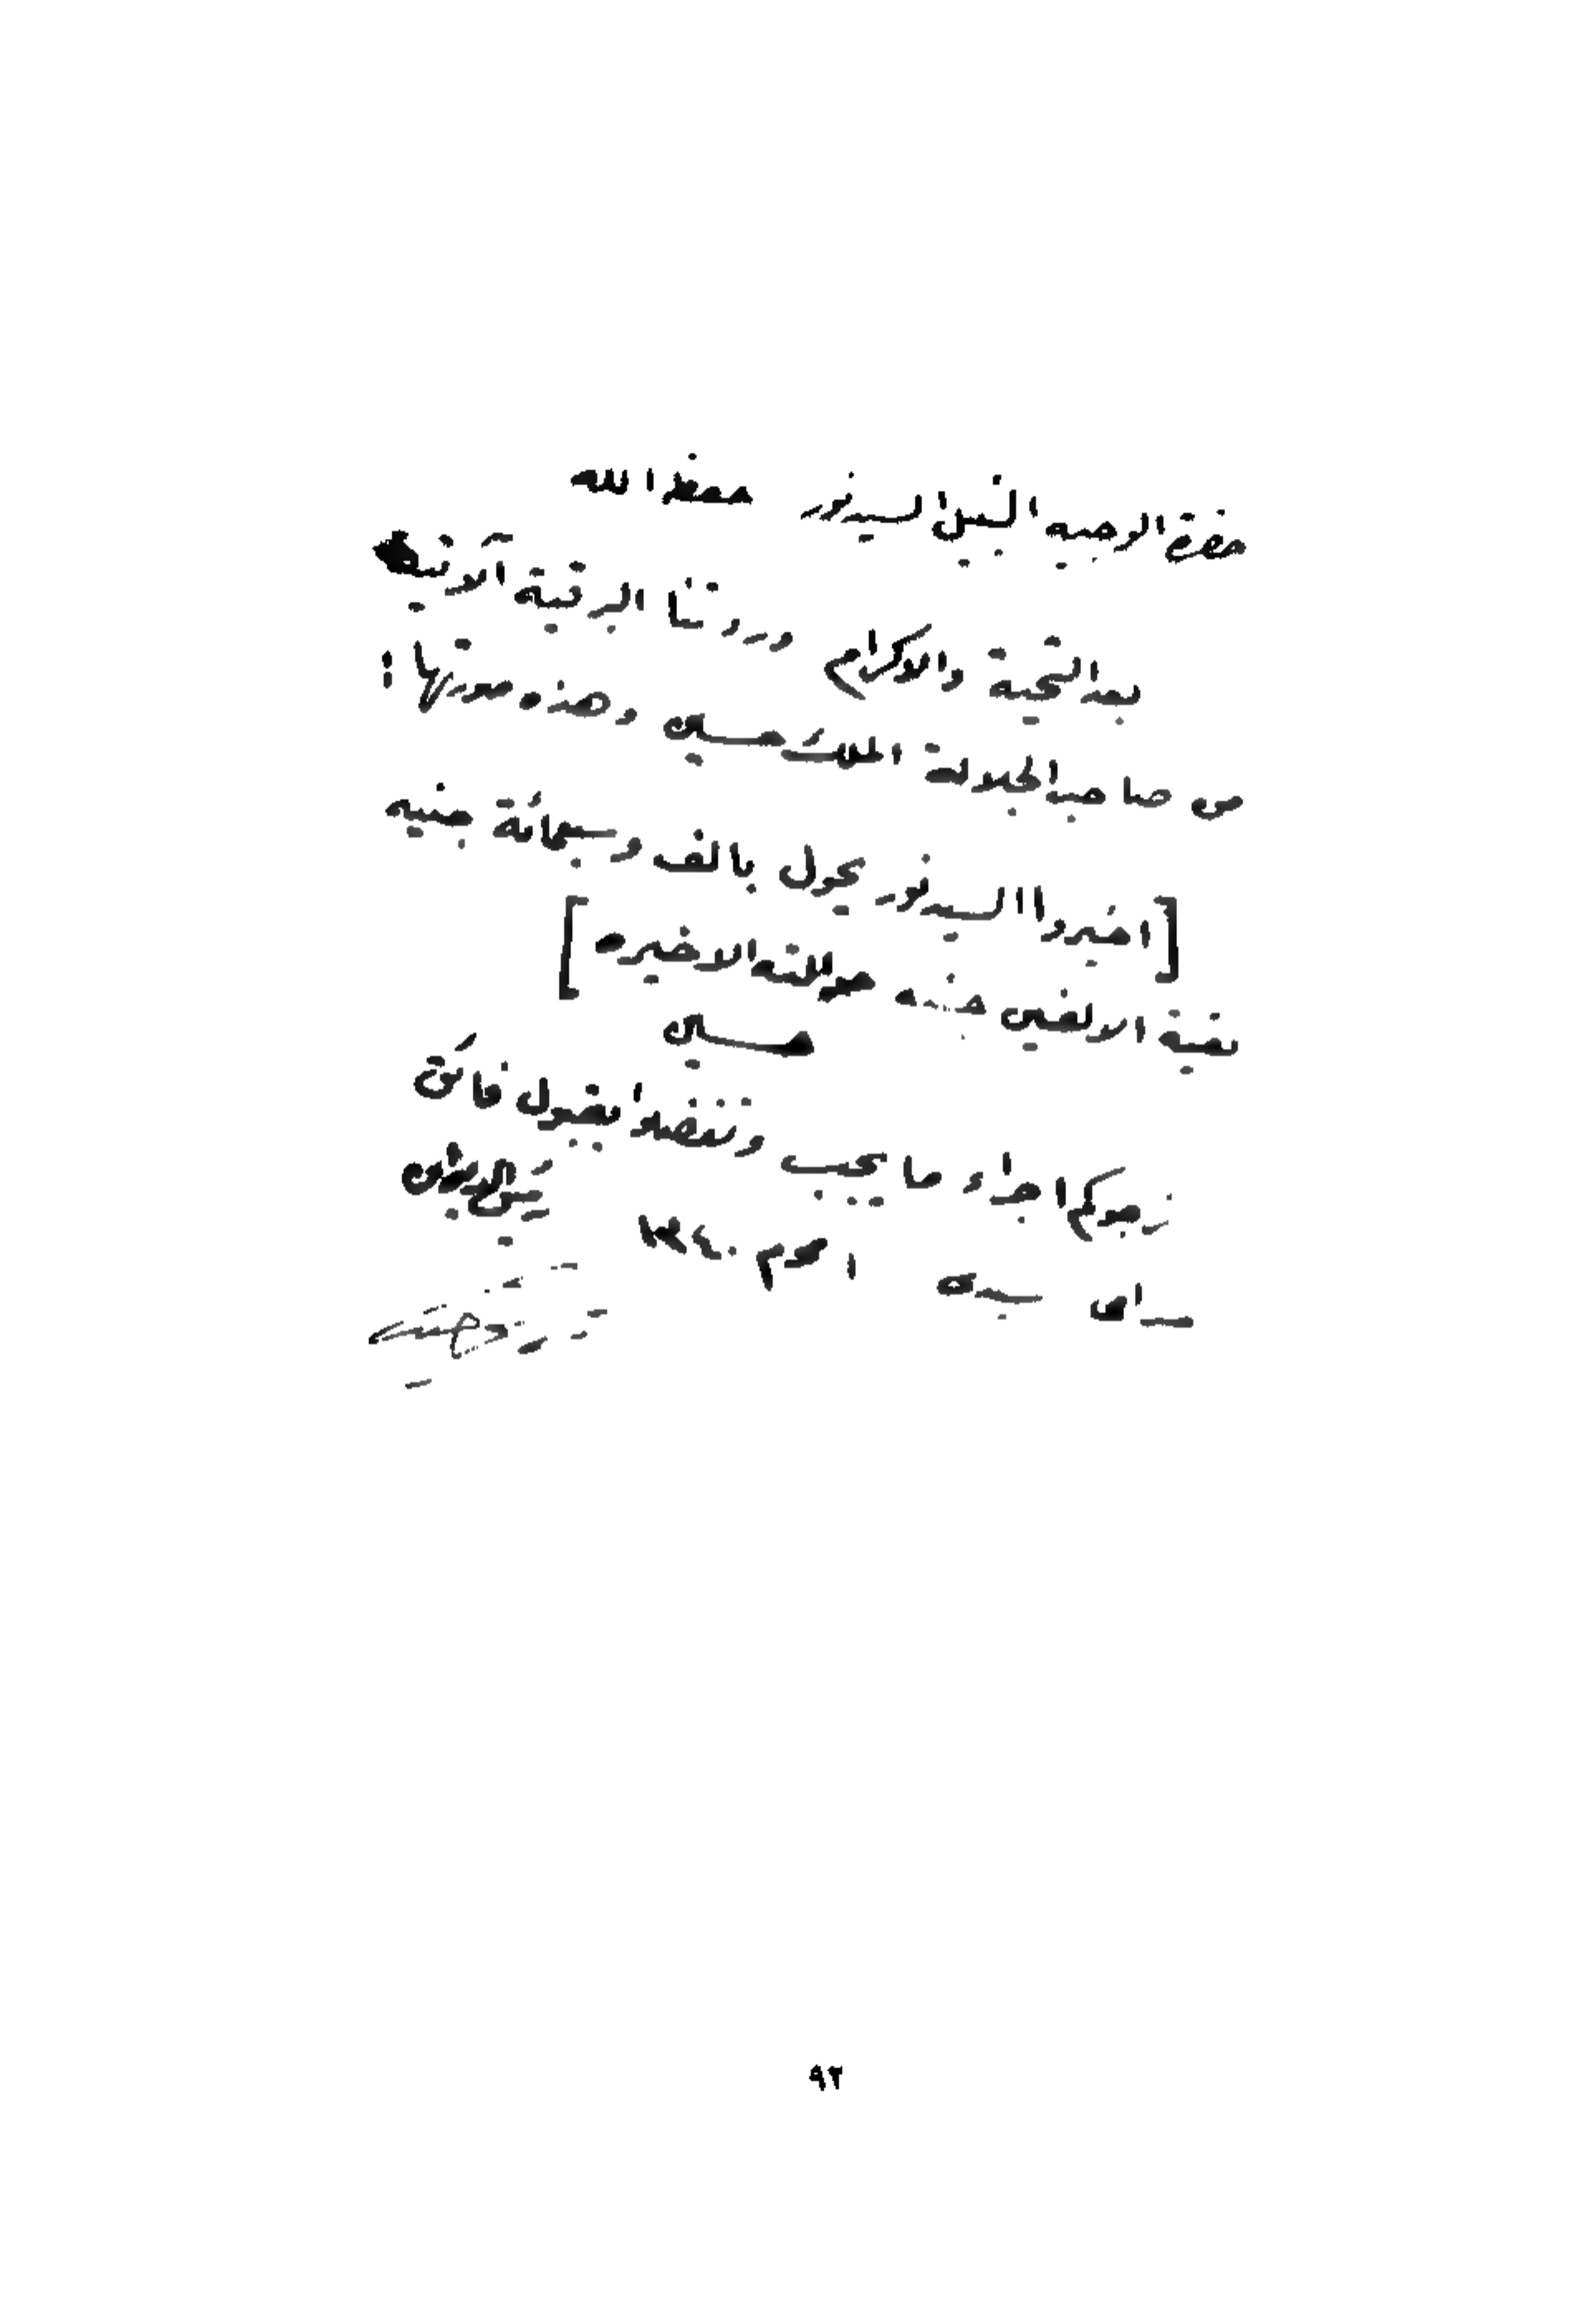 حضرة الوجيه النبيل السيد نور حفظه الله
بعد التحية والاكرام وردتنا البرقية الآتية
من صاحب الجلالة الملك حسين وهذه صورتها :
[ اخبروا السيد نور يحول بالف وسبعمائة جنيه
بقية الالفين جنيه حوالاته الاخيره ]
حسين
نرجوكم اجراء ما يجب وتتفضلوا بقبول فائق
سيدى محرم ١٣٤٠
٩٢